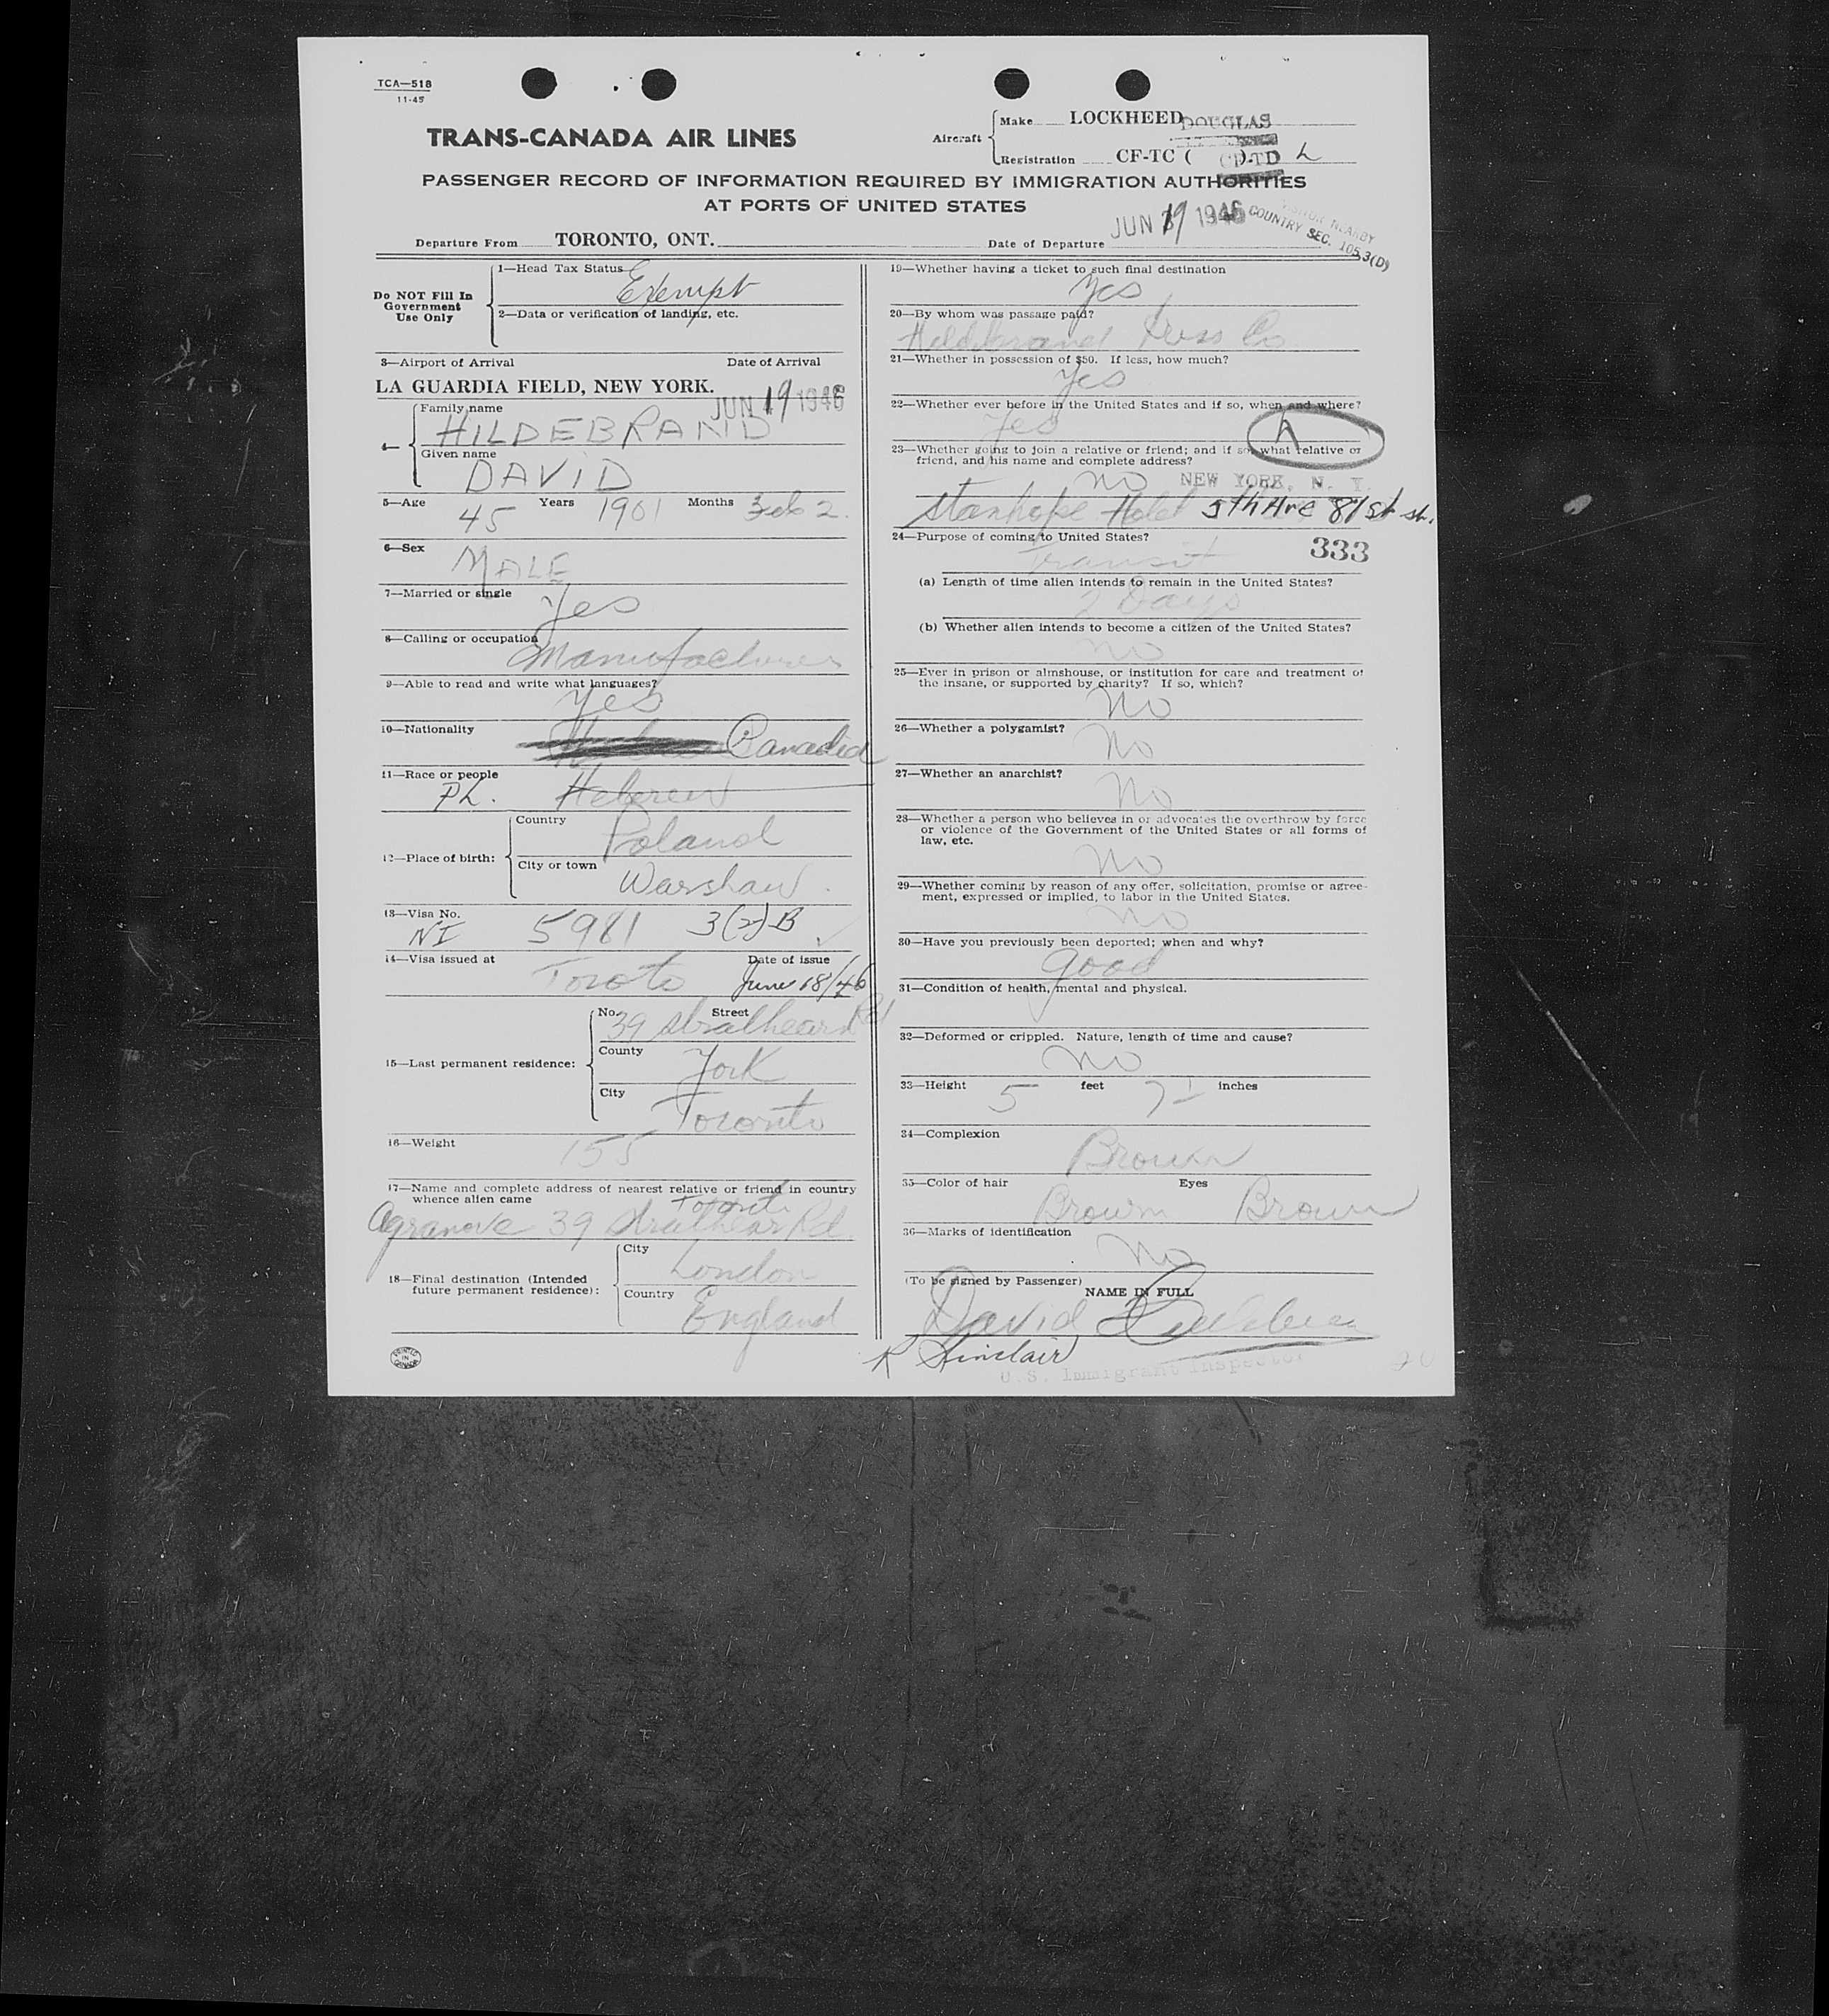 TCA—518
11-45
TRANS-CANADA AIR LINES
Aircraft
Make LOCKHEED DOUGLAS
Registration CF-TC ( ) CF-TD L
PASSENGER RECORD OF INFORMATION REQUIRED BY IMMIGRATION AUTHORITIES
AT PORTS OF UNITED STATES
Departure From TORONTO, ONT.
Date of Departure JUN 19 1946
COUNTRY SEC. 105.3(D)
Do NOT Fill In
Government
Use Only
1—Head Tax Status
Exempt
2—Data or verification of landing, etc.
3—Airport of Arrival Date of Arrival
LA GUARDIA FIELD, NEW YORK. JUN 19 1946
4— Family name
HILDEBRAND
Given name
DAVID
5—Age 45 Years 1901 Months Feb 2.
6—Sex
MALE
7—Married or single
Yes
8—Calling or occupation
Manufacturer
9—Able to read and write what languages?
Yes
10—Nationality
Canadian
11—Race or people
PL. Hebrew
12—Place of birth:
Country
Poland
City or town
Warshaw.
13—Visa No.
NI 5981 3(2)B
14—Visa issued at Date of issue
Toroto June 18/46
15—Last permanent residence:
No. Street
39 Strathearn Rd
County
York
City
Toronto
16—Weight
155
17—Name and complete address of nearest relative or friend in country
whence alien came
Toronto
Agranove 39 Strathear Rd
18—Final destination (Intended
future permanent residence):
City
London
Country
England
PRINTED IN CANADA
19—Whether having a ticket to such final destination
Yes
20—By whom was passage paid?
Hildebrand Dress Co
21—Whether in possession of $50. If less, how much?
Yes
22—Whether ever before in the United States and if so, when and where?
Yes
23—Whether going to join a relative or friend; and if so, what relative or
friend, and his name and complete address?
No NEW YORK, N. Y.
Stanhope Hotel 5th Ave 81st st.
24—Purpose of coming to United States?
Transit 333
(a) Length of time alien intends to remain in the United States?
2 Days
(b) Whether alien intends to become a citizen of the United States?
no
25—Ever in prison or almshouse, or institution for care and treatment of
the insane, or supported by charity? If so, which?
No
26—Whether a polygamist?
No
27—Whether an anarchist?
No
28—Whether a person who believes in or advocates the overthrow by force
or violence of the Government of the United States or all forms of
law, etc.
No
29—Whether coming by reason of any offer, solicitation, promise or agree-
ment, expressed or implied, to labor in the United States.
No
30—Have you previously been deported; when and why?
good
31—Condition of health, mental and physical.
32—Deformed or crippled. Nature, length of time and cause?
No
33—Height 5 feet 7 inches
34—Complexion
Brown
35—Color of hair Eyes
Brown Brown
36—Marks of identification
No
(To be signed by Passenger)
NAME IN FULL
David
R Sinclair
U.S. Immigrant Inspector